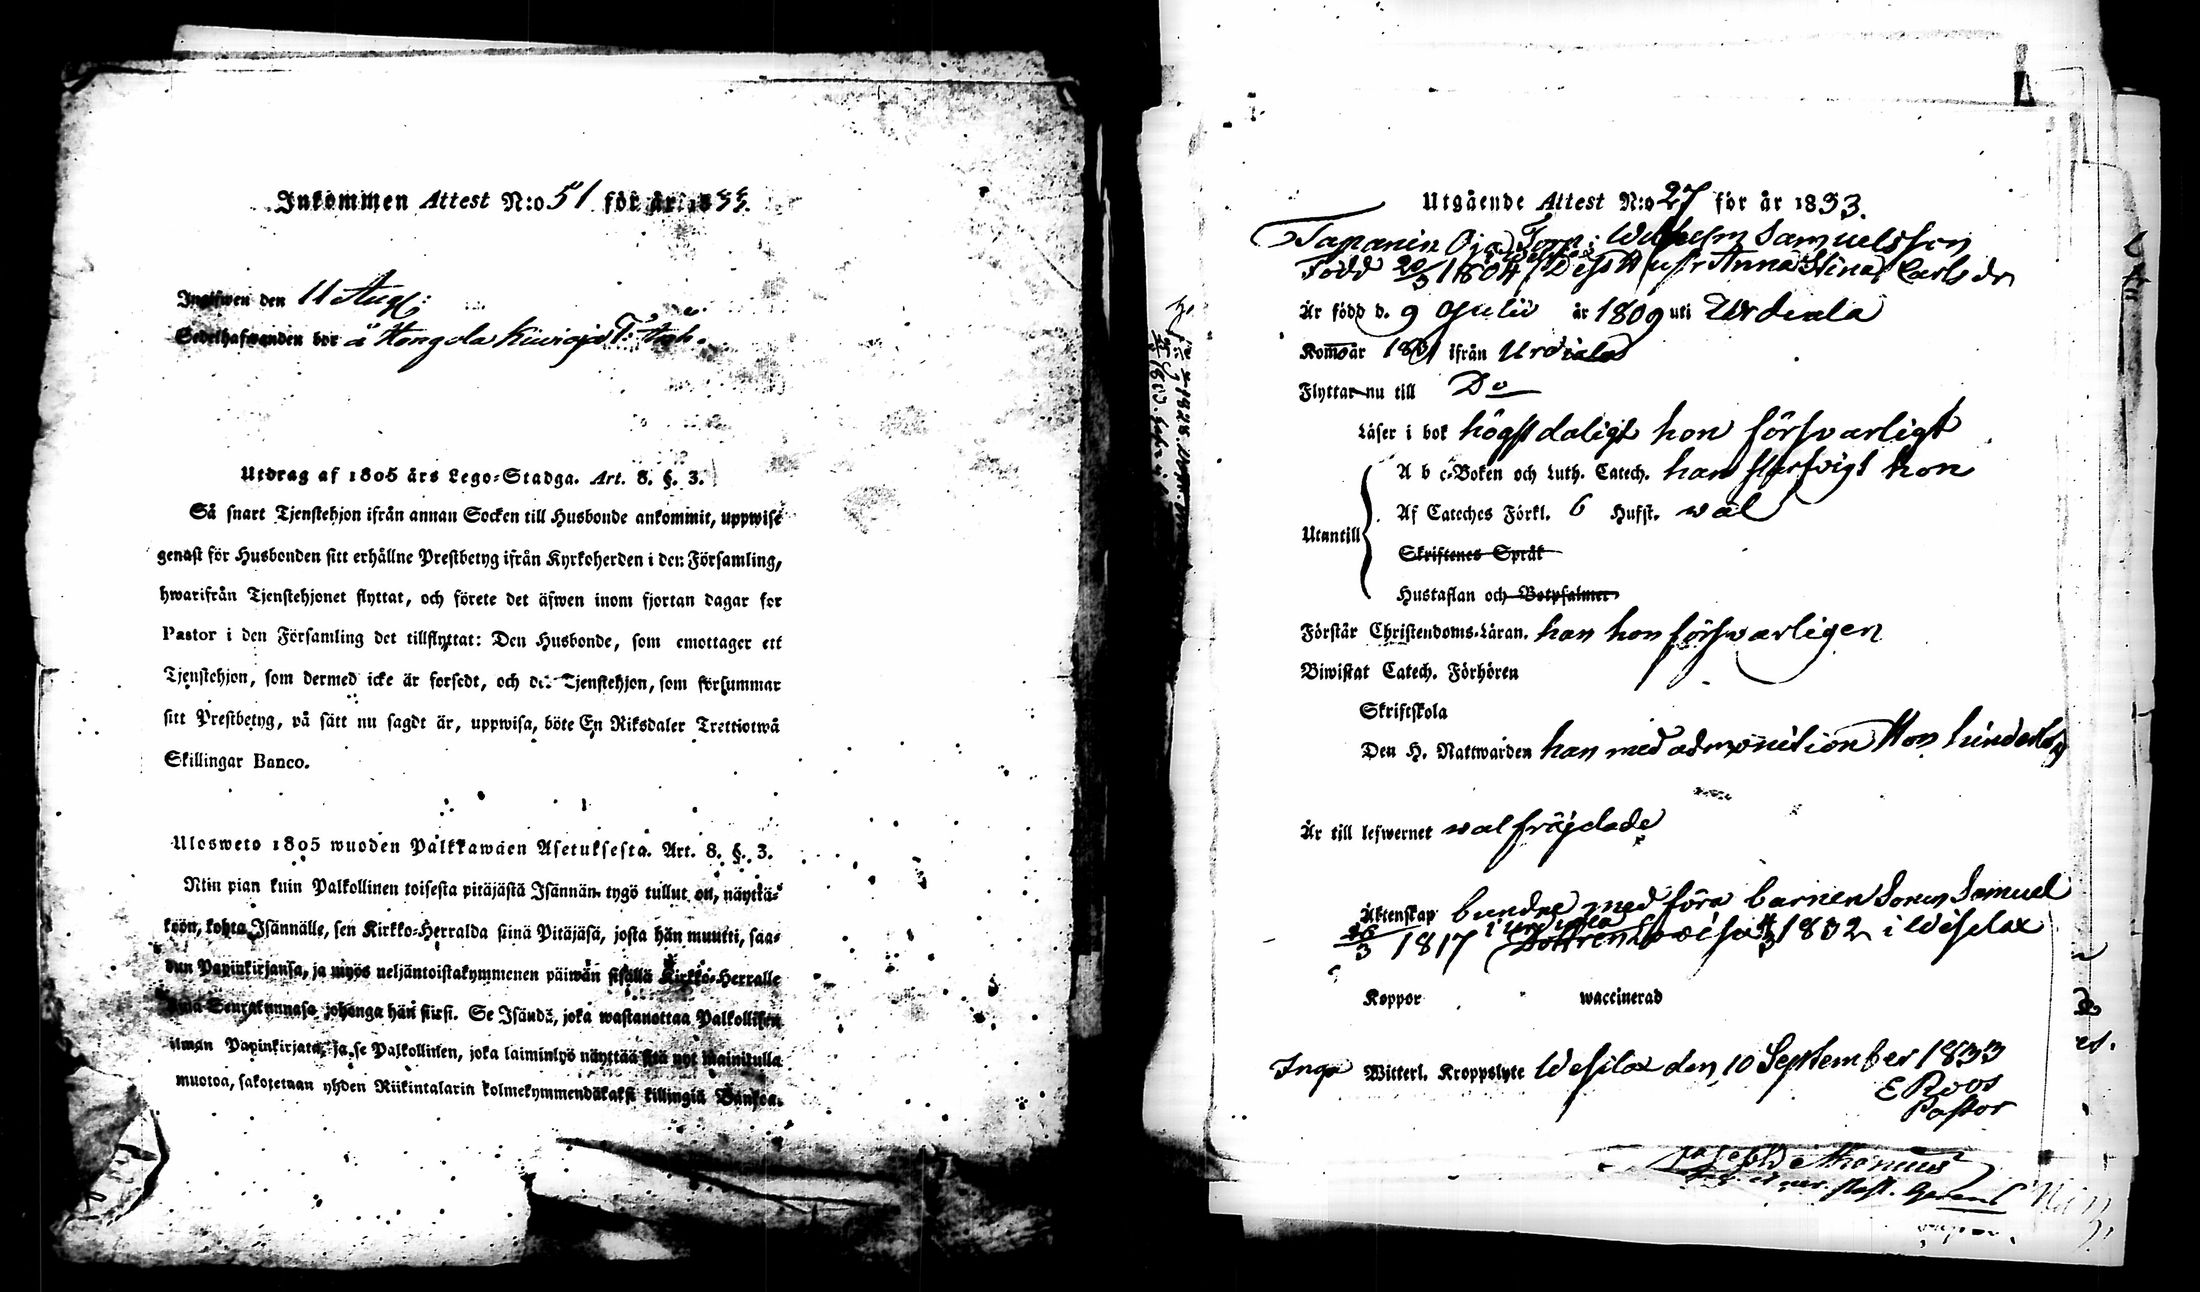 Inkommen Attest N:o 51 för år 1833.
Ingifwen den 11 Aug:
Sedelhafwanden bor å Hongola
Utdrag af 1805 års Lego-Stadga. Art. 8. §. 3.
Så snart Tjenstehjon ifrån annan Socken till Husbonde ankommit, uppwise
genast för Husbonden sitt erhållne Prestbetyg ifrån Kyrkoherden i den Församling,
hwarifrån Tjenstehjonet flyttat, och förete det äfwen inom fjortan dagar för
Pastor i den Församling det tillflyttat: Den Husbonde, som emottager ett
Tjenstehjon, som dermed icke är försedt, och det Tjenstehjon, som försummar
sitt Prestbetyg, på sätt nu sagdt är, uppwisa, böte En Riksdaler Trettiotwå
Skillingar Banco.
Ulosweto 1805 wuoden Palkkawäen Asetuksesta. Art. 8. §. 3.
Niin pian kuin Palkollinen toisesta pitäjästä Isännän tygö tullut on, näyttä-
köön, kohta Isännälle, sen Kirkko-Herralda siinä Pitäjäsä, josta hän muutti, saa-
dun Papinkirjansa, ja myös neljäntoistakymmenen päiwän sisällä Kirkko-Herralle
siinä Seurakunnasa johonga hän siirsi. Se Isändä, joka wastanottaa Palkollisen
ilman Papinkirjata, ja se Palkollinen, joka laiminlyö näyttää sitä nyt mainitulla
muotoa, sakotetaan yhden Riikintalarin kolmekymmendäkaksi killingiä Bankoa.
Utgående Attest N:o 27 för år 1833.
Tapanin Oja Torp: Wilhelm Samuelsson
Född 20/3 1804 Dess Hustr Anna Stina Carls dr
Är född d. 9 Julii år 1809 uti Urdiala
Kom år ifrån Urdiala
Flyttar nu till Do
Läser i bok högst daligt hon försvarligt
Utantill
A b c-Boken och Luth. Catech. han slarfvigt hon
Af Cateches Förkl. 6 Hufst. wäl
Skriftenes Språk
Hustaflan och Botpsalmer
Förstår Christendoms-Läran. han hon försvarligen
Biwistat Catech. Förhören
Skriftskola
Den H. Nattwarden han med admonition Hon hinderlös
Är till lefwernet wälfräjdade
Äktenskap bundne medföra barnen Sonen Samuel
1817 i Urdiala Dottren Lovisa 1832 i Wesilax
Koppor waccinerad
Inga Witterl. Kroppslyte Wesilax den 10 September 1833
E Roos
Pastor